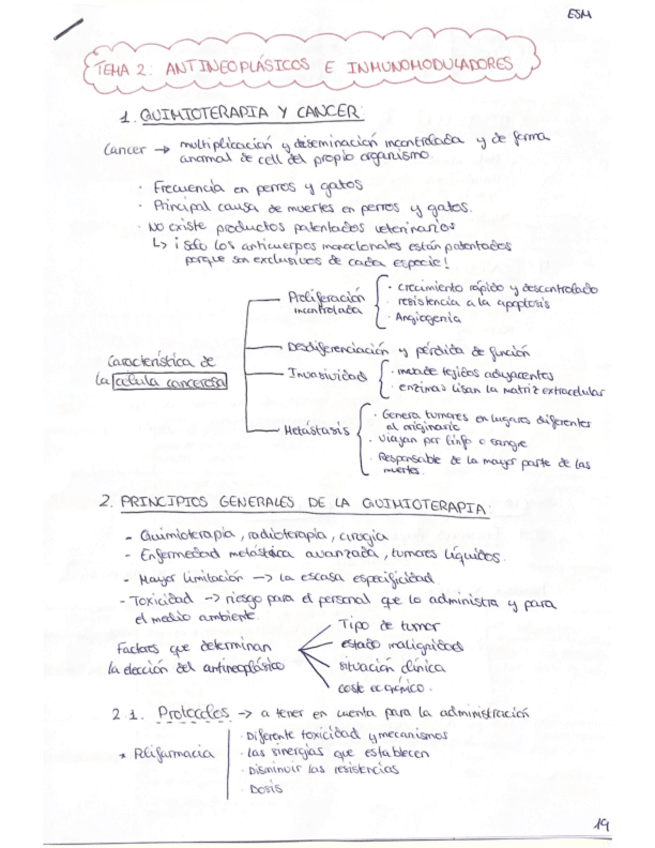 ESM
TEMA 2: ANTINEOPLÁSICOS E INMUNOMODULADORES
1. QUIMIOTERAPIA Y CANCER:
Cancer → multiplicación y diseminación incontrolada y de forma
anormal de cell del propio organismo.
· Frecuencia en perros y gatos
· Principal causa de muertes en perros y gatos.
· No existe productos patentados veterinarios
↳ ¡ Solo los anticuerpos monoclonales están patentados
porque son exclusivos de cada especie!
Característica de
la célula cancerosa
Proliferación
incontrolada
· crecimiento rápido y descontrolado
· resistencia a la apoptosis
· Angiogenia
Desdiferenciación y pérdida de función
Invasividad
· invade tejidos adyacentes
· enzimas lisan la matriz extracelular
Metástasis
· Genera tumores en lugares diferentes
al originario
· Viajan por linfa o sangre
· Responsable de la mayor parte de las
muertes.
2. PRINCIPIOS GENERALES DE LA QUIMIOTERAPIA:
- Quimioterapia, radioterapia, cirugía
- Enfermedad metástica avanzada, tumores líquidos.
- Mayor limitación → la escasa especificidad.
- Toxicidad → riesgo para el personal que lo administra y para
el medio ambiente.
Factores que determinan
la elección del antineoplásico
Tipo de tumor
estado malignidad
situación clínica
coste económico.
2.1. Protocolos → a tener en cuenta para la administración
* Polifarmacia
· Diferente toxicidad y mecanismos
· Las sinergias que establecen
· Disminuir las resistencias
· Dosis
19